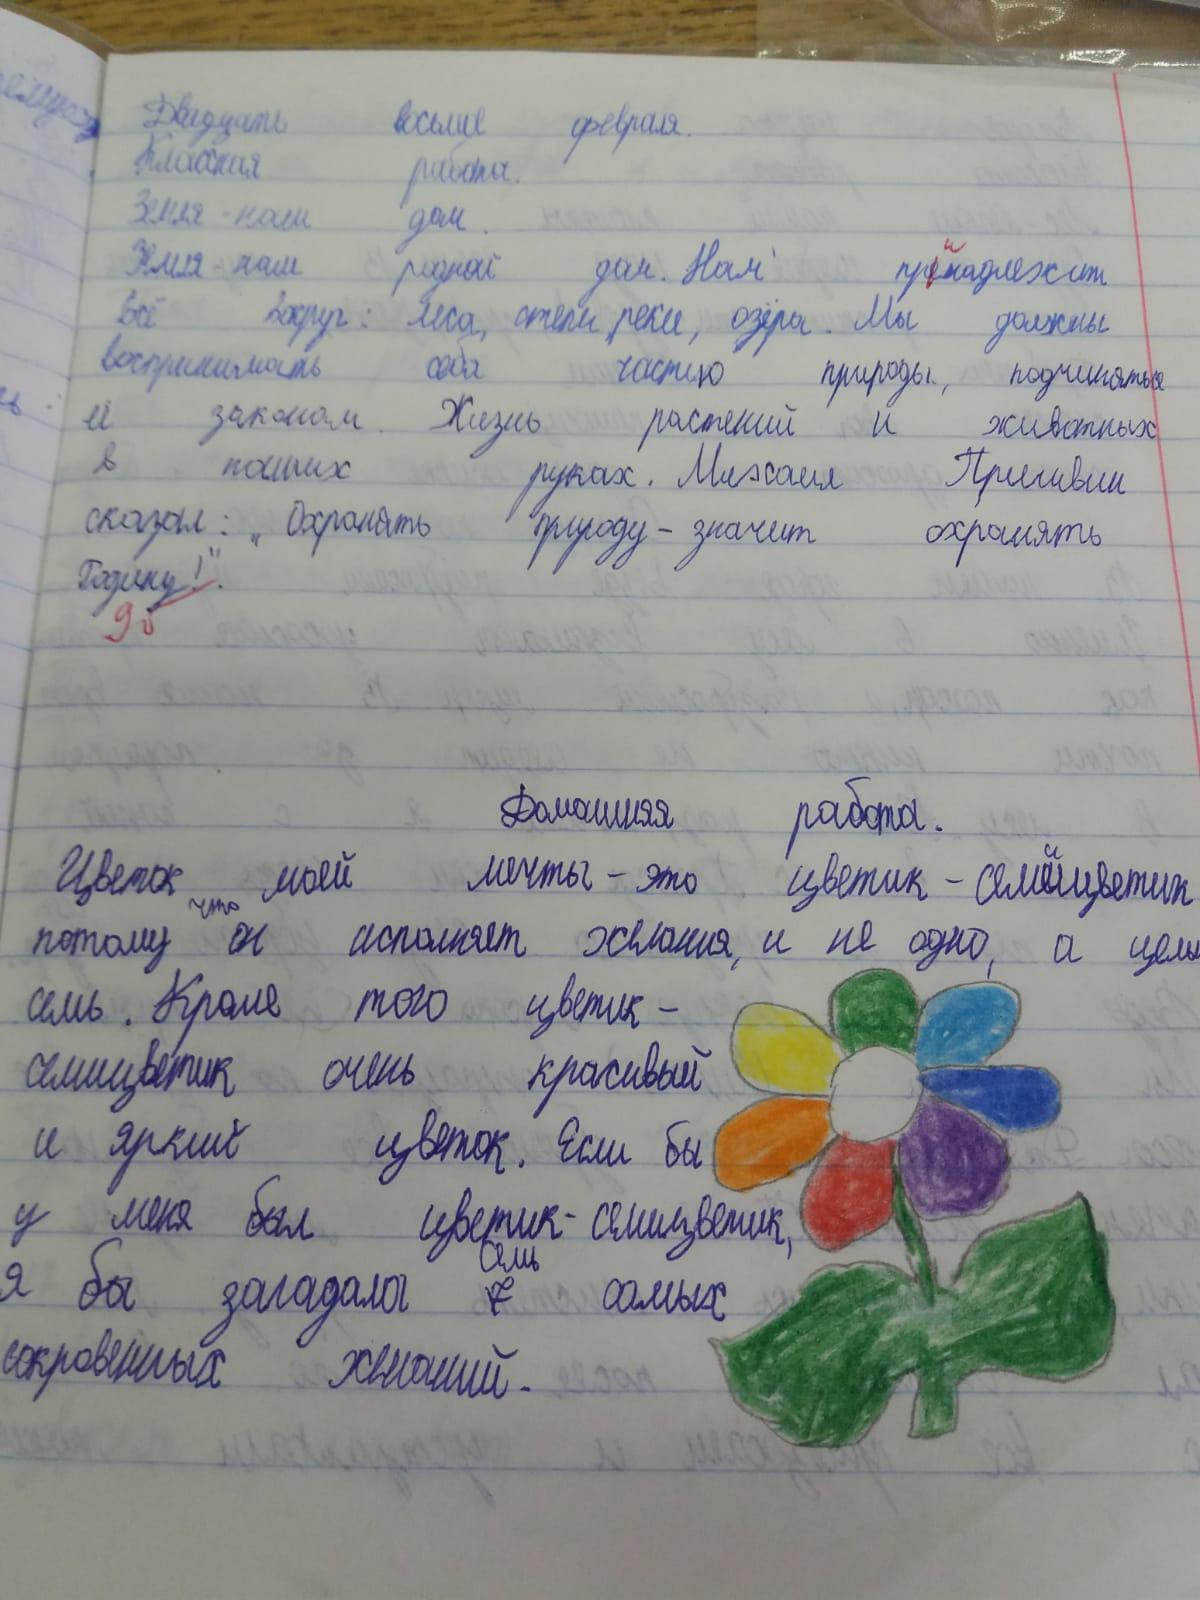 Двадцать восьмое февраля.
Классная работа.
Земля - наш дом.
Земля - наш родной дом. Нам принадлежит
всё вокруг: леса, степи, реки, озёра. Мы должны
воспринимать себя частью природы, подчиняться
её законам. Жизнь растений и животных
в наших руках. Михаил Пришвин
сказал: „Охранять природу - значит охранять
Родину!".
9б
Домашняя работа.
Цветок моей мечты - это цветик - семицветик
потому что он исполняет желания, и не одно, а целых
семь. Кроме того цветик -
семицветик очень красивый
и яркий цветок. Если бы
у меня был цветик - семицветик,
я бы загадала семь самых
сокровенных желаний.